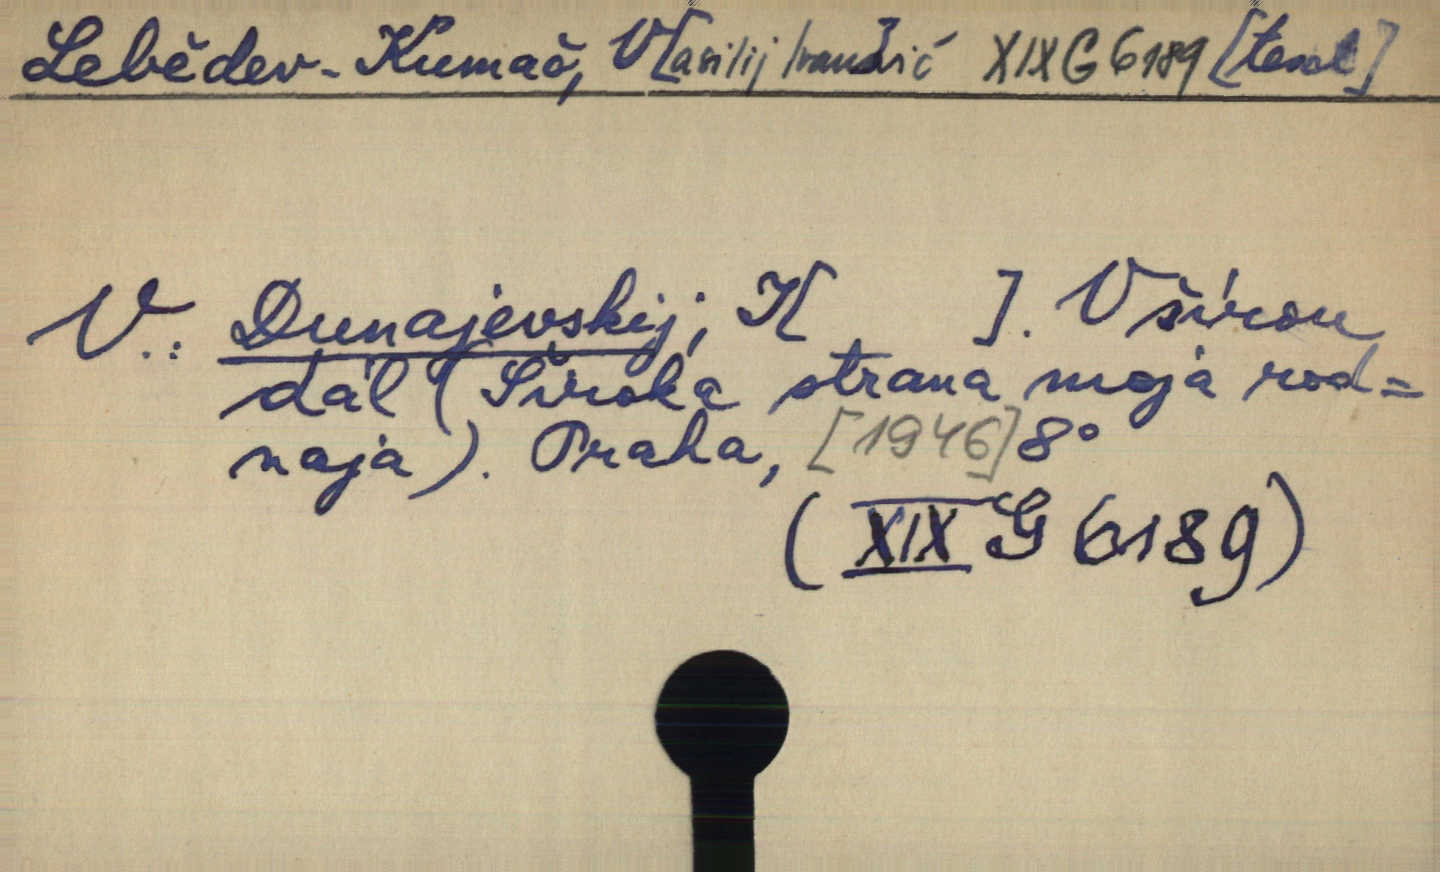 Leběděv-Kumač, V[asilij Ivanović XIX G 6189 [text]
V.: Dunajevskij, K[ ]. V širou
dál (Široka strana moja rod=
naja). Praha, [1946] 8°
(XIX G 6189)